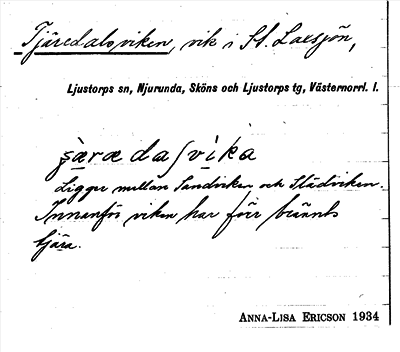 Tjäredalsviken, vik i St. Laxsjön,
Ljustorps sn, Njurunda, Sköns och Ljustorps tg, Västernorrl. l.
ʃæræda ʃvika
Ligger mellan Sandviken och Städviken.
Innanför viken har förr bränts
tjära.
ANNA-LISA ERICSON 1934